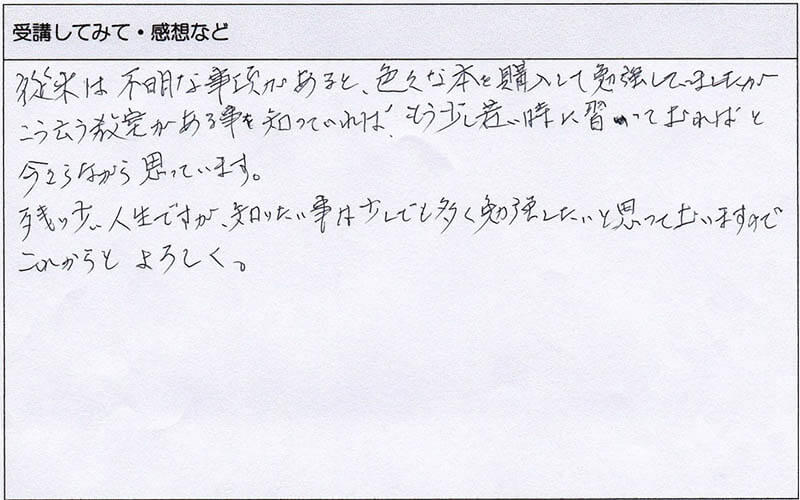 受講してみて・感想など
従来は不明な事項があると、色々な本を購入して勉強していましたが
こう云う教室がある事を知っていれば、もう少し若い時に習っておればと
今さらながら思っています。
残り少い人生ですが、知りたい事は少しでも多く勉強したいと思って居いますので
これからも よろしく。